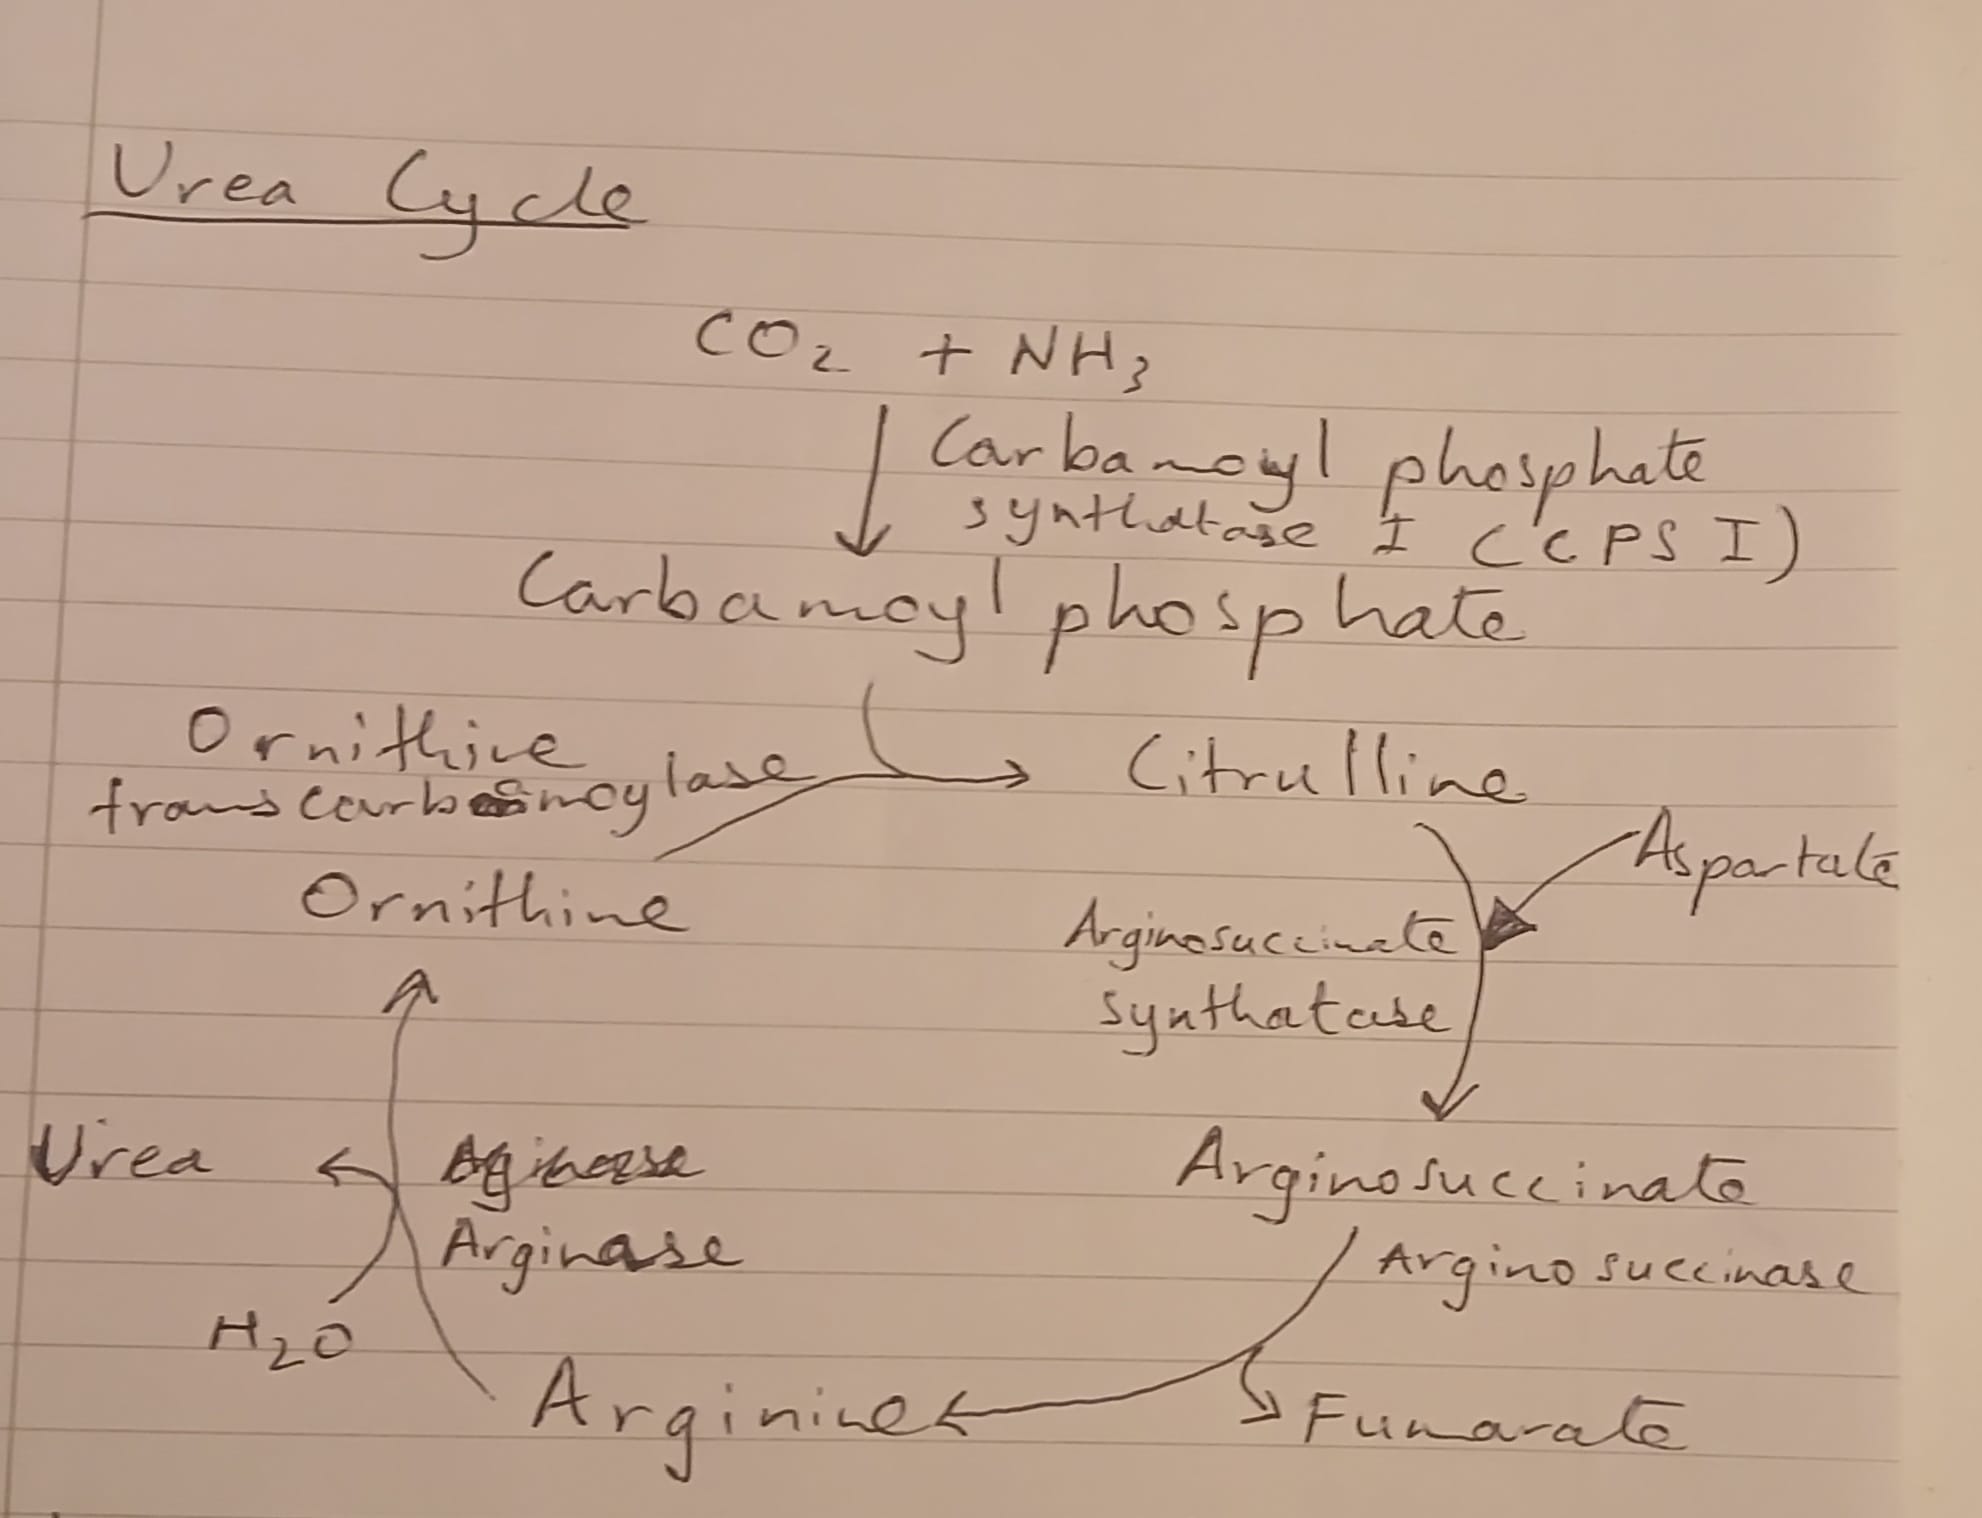 Urea Cycle
CO₂ + NH₃
Carbamoyl phosphate
synthatase I (CPS I)
Carbamoyl phosphate
Ornithine
transcarbamoylase
Citrulline
Aspartate
Ornithine
Arginosuccinate
synthatase
Urea
Arginase
Arginosuccinate
Arginosuccinase
H₂O
Arginine
Fumarate